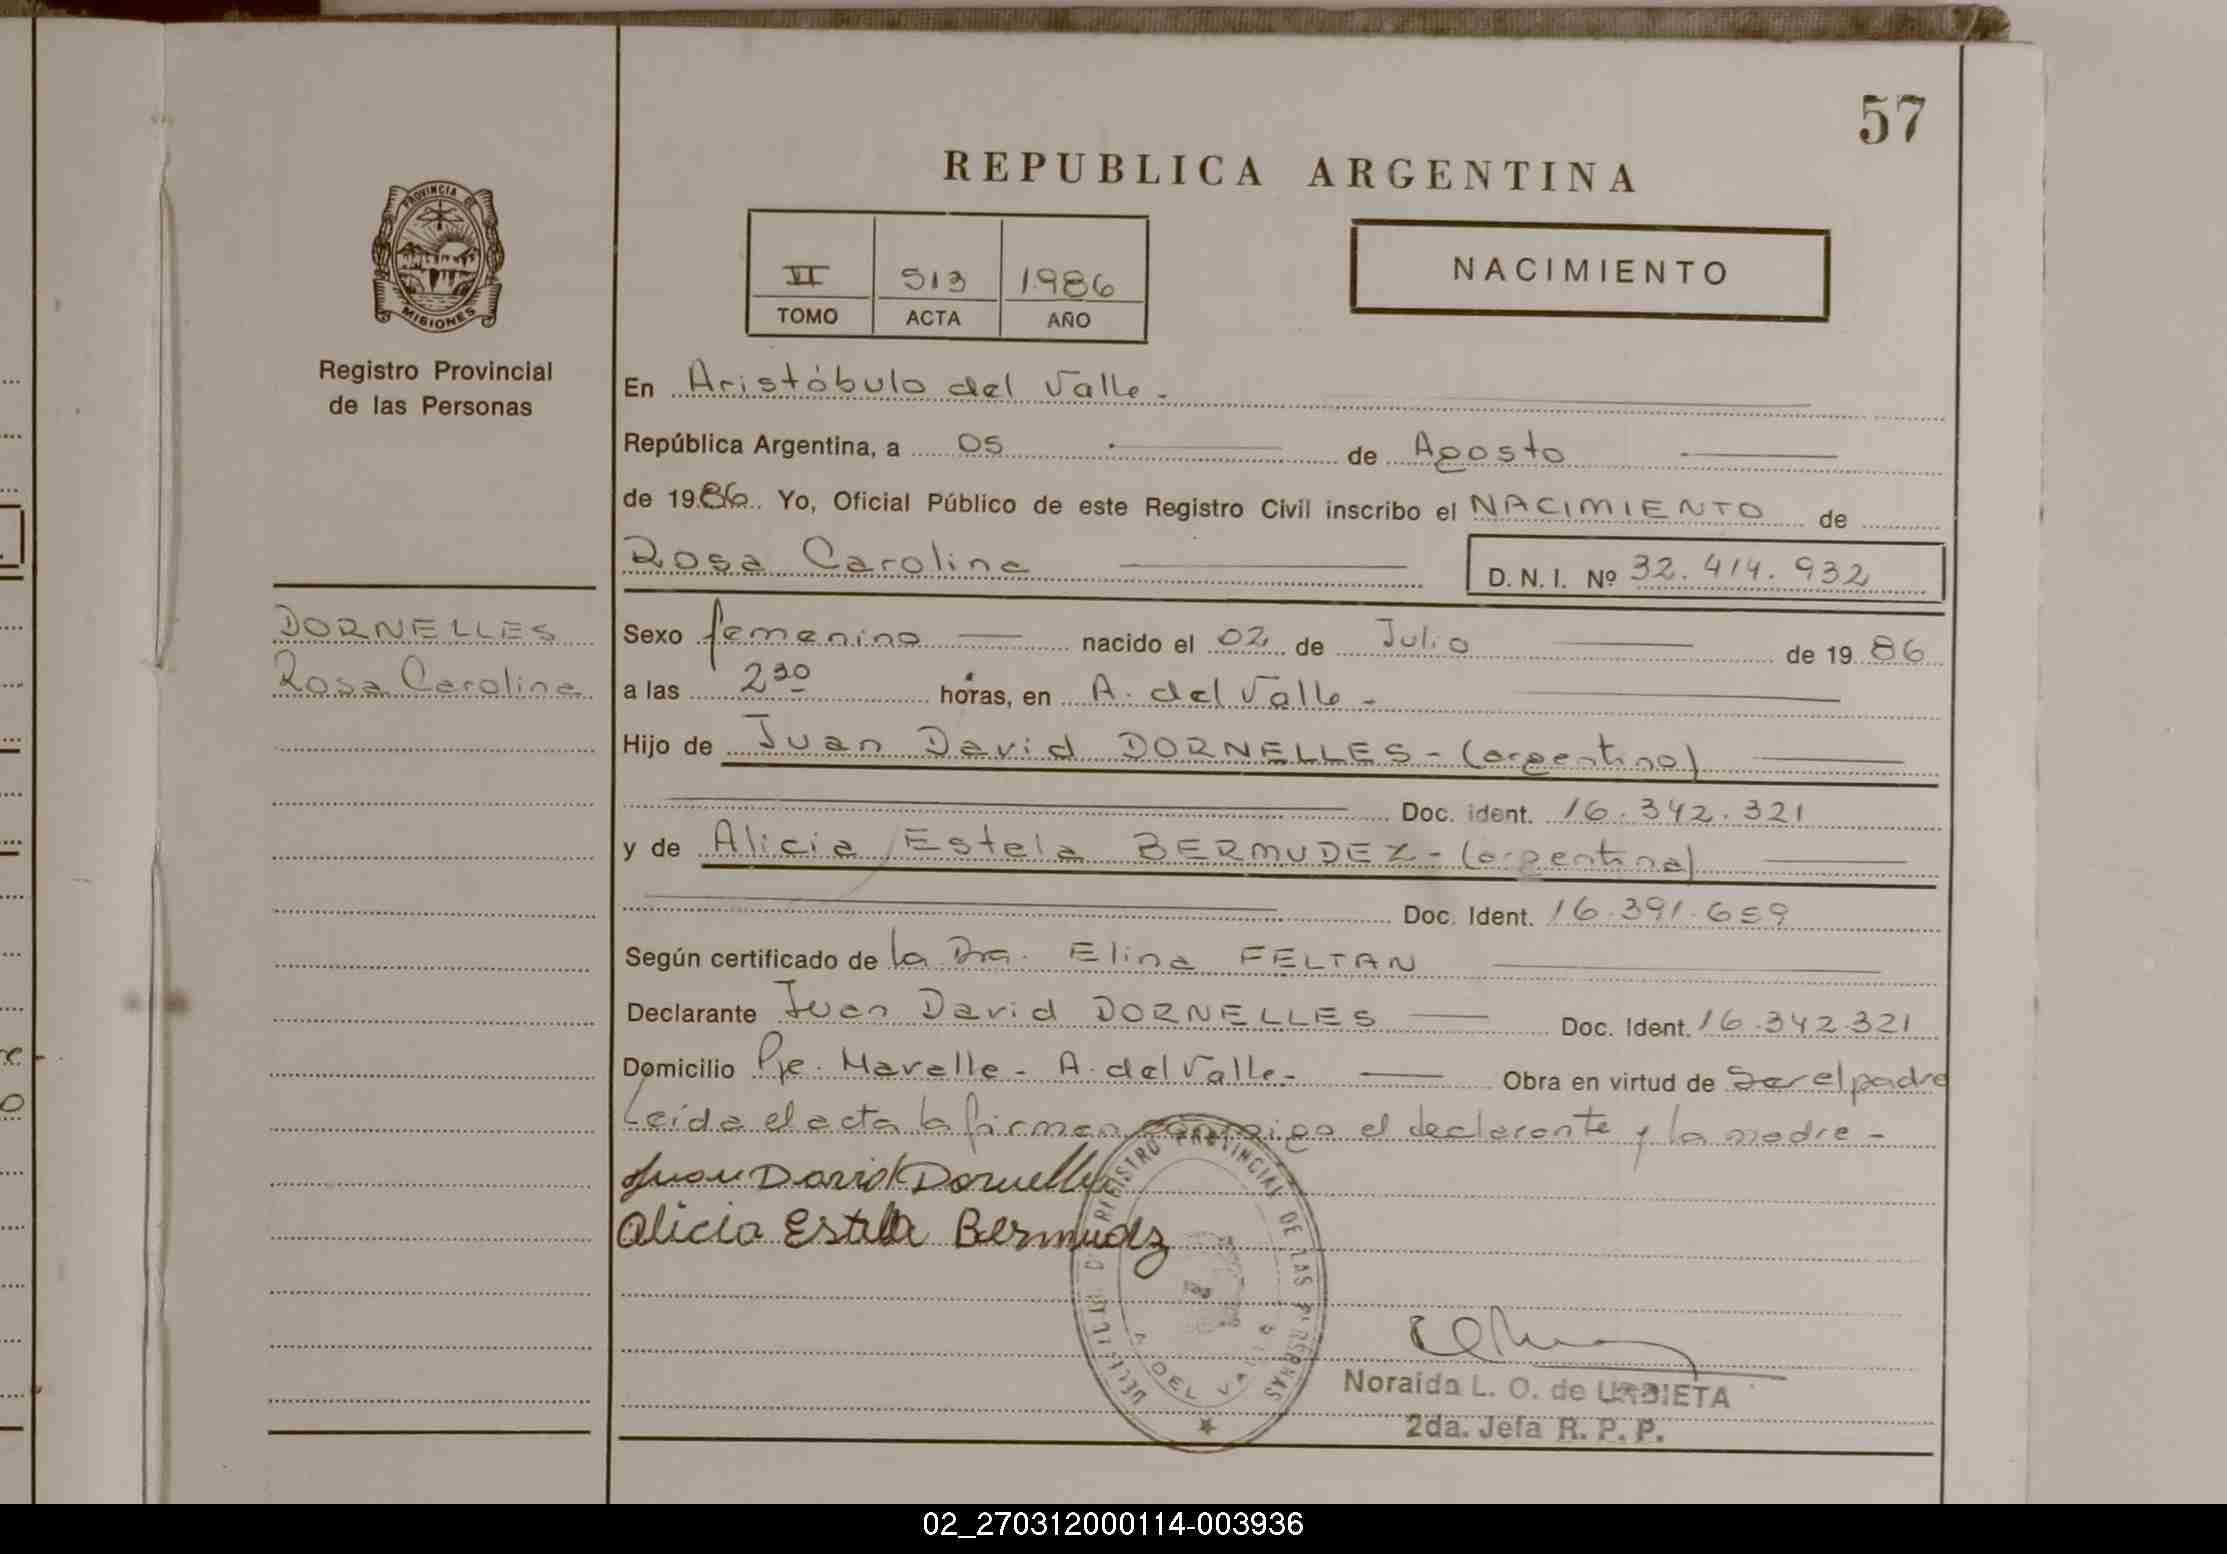 57
REPUBLICA ARGENTINA
PROVINCIA DE
MISIONES
Registro Provincial
de las Personas
NACIMIENTO
VI 513 1986
TOMO ACTA AÑO
En Aristóbulo del Valle.-
República Argentina, a 05 de Agosto
de 1986. Yo, Oficial Público de este Registro Civil inscribo el NACIMIENTO de
Rosa Carolina D.N.I. Nº 32.414.932
DORNELLES
Rosa Carolina
Sexo femenino nacido el 02 de Julio de 1986
a las 2 30 horas, en A. del Valle -
Hijo de Juan David DORNELLES - (argentino)
Doc. ident. 16.342.321
y de Alicia Estela BERMUDEZ - (argentina)
Doc. Ident. 16.391.659
Según certificado de la Dra. Elina FELTAN
Declarante Juan David DORNELLES Doc. Ident. 16.342.321
Domicilio Pje. Mavalle - A. del Valle.- Obra en virtud de Ser el padre
Leída el acta la firman conmigo el declarante y la madre -
Juan David Dornelles
Alicia Estela Bermudez
REGISTRO PROVINCIAL DE LAS PERSONAS
A. DEL VALLE
Noraida L. O. de URBIETA
2da. Jefa R. P. P.
02_270312000114-003936